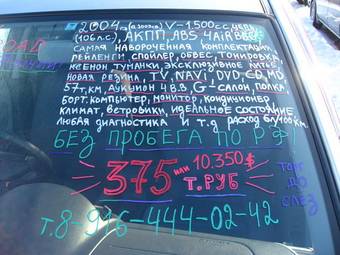 2004 г. (в 2005г) V-1.500 сс.
(106 л.с), АКПП, ABS, 4 AIRBEG
САМАЯ НАВОРОЧЕННАЯ КОМПЛЕКТАЦИЯ
РЕЙЛЕНГИ, СПОЙЛЕР, ОБВЕС, ТОНИРОВКА
КСЕНОН ТУМАНКИ, ЭКСКЛЮЗИВНОЕ ЛИТЬЕ,
НОВАЯ РЕЗИНА, TV, NAVI, DVD, CD, MD,
57 т.км, АУКЦИОН 4 В В, G-САЛОН, ПОЛКА,
БОРТ. КОМПЬЮТЕР, МОНИТОР, КОНДИЦИОНЕР
КЛИМАТ, ВЕТРОВИКИ, ИДЕАЛЬНОЕ СОСТОЯНИЕ
ЛЮБАЯ ДИАГНОСТИКА И Т.Д РАСХОД 6л/100км.
БЕЗ ПРОБЕГА ПО РФ
375 ИЛИ 10.350$
Т.РУБ
ТОРГ
ДО
СЛЕЗ
т. 8-916-444-02-42